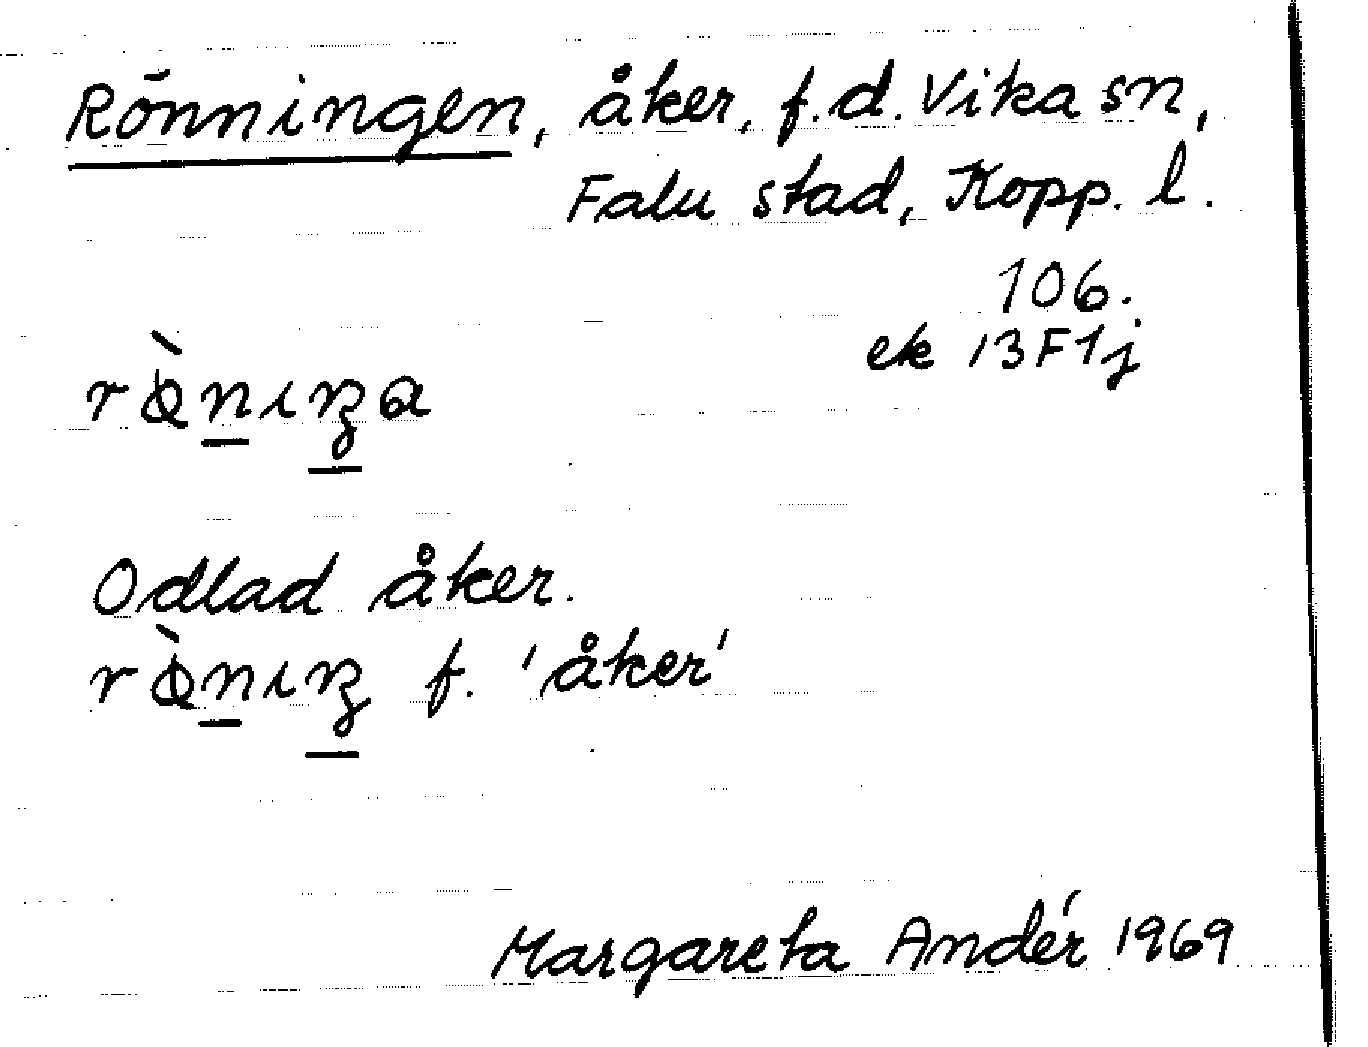 Rönningen, åker, f.d. Vika sn,
Falu stad, Kopp. l.
106.
ek 13F1j
Odlad åker.
f. 'åker'
Margareta Andér 1969